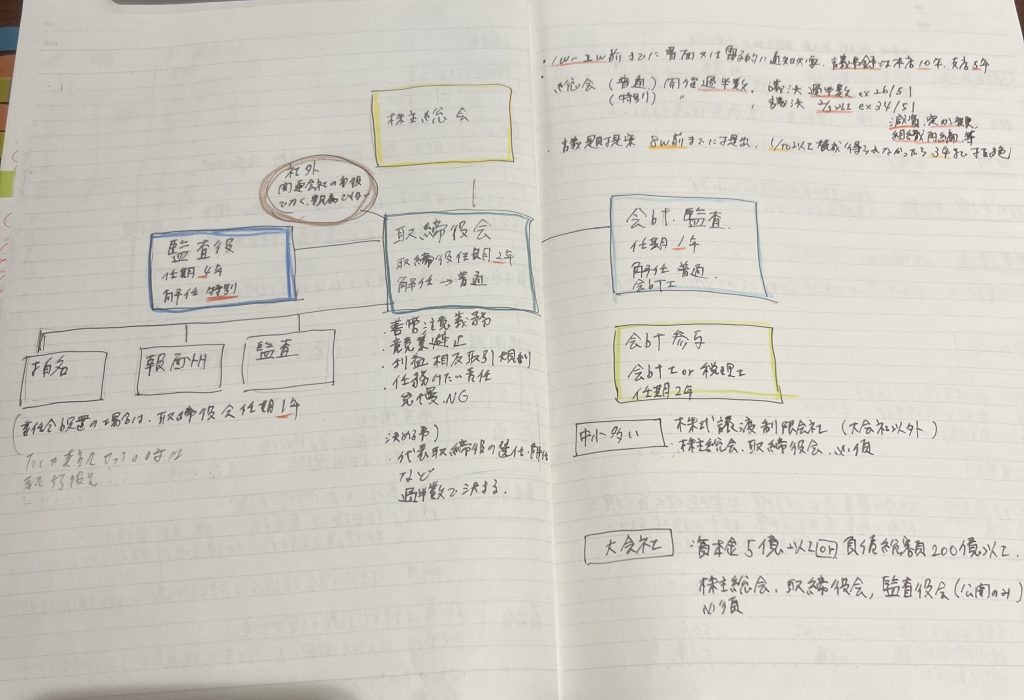 ・1w~2w前までに書面又は電子的に通知必要、議事録は本店10年、支店5年
・総会(普通)開催過半数、議決過半数 ex 26/51
(特別) 〃 、議決 2/3以上 ex 34/51
減資、定款変更、
組織再編 等
・議題提案 8w前までに提出、1/10以上 得られなかったら 3年 拒絶
株主総会
社外
関連会社の
でなく、親族でない
取締役会
取締役任期 2年
解任→普通
監査役
任期 4年
解任 特別
会計監査
任期 1年
解任 普通
会計士
指名
報酬
監査
(委員会設置の場合は、取締役会任期 1年
・善管注意義務
・競業避止
・利益相反取引規制
・任務けたい責任
怠慢 NG
決める事)
・代表取締役の選任・解任
など
過半数で決まる。
会計参与
会計士 or 税理士
任期 2年
中小多い
・株式譲渡制限会社(大会社以外)
・株主総会、取締役会 必須
大会社
資本金5億以上 or 負債総額200億以上
株主総会、取締役会、監査役会(公開のみ)
必須